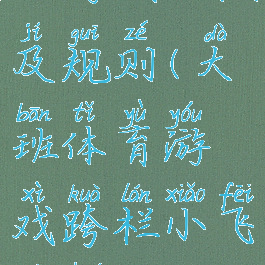 jí guī zé dà
及规则(大
bān tǐ yù yóu
班体育游
xì kuà lán xiǎo fēi
戏跨栏小飞